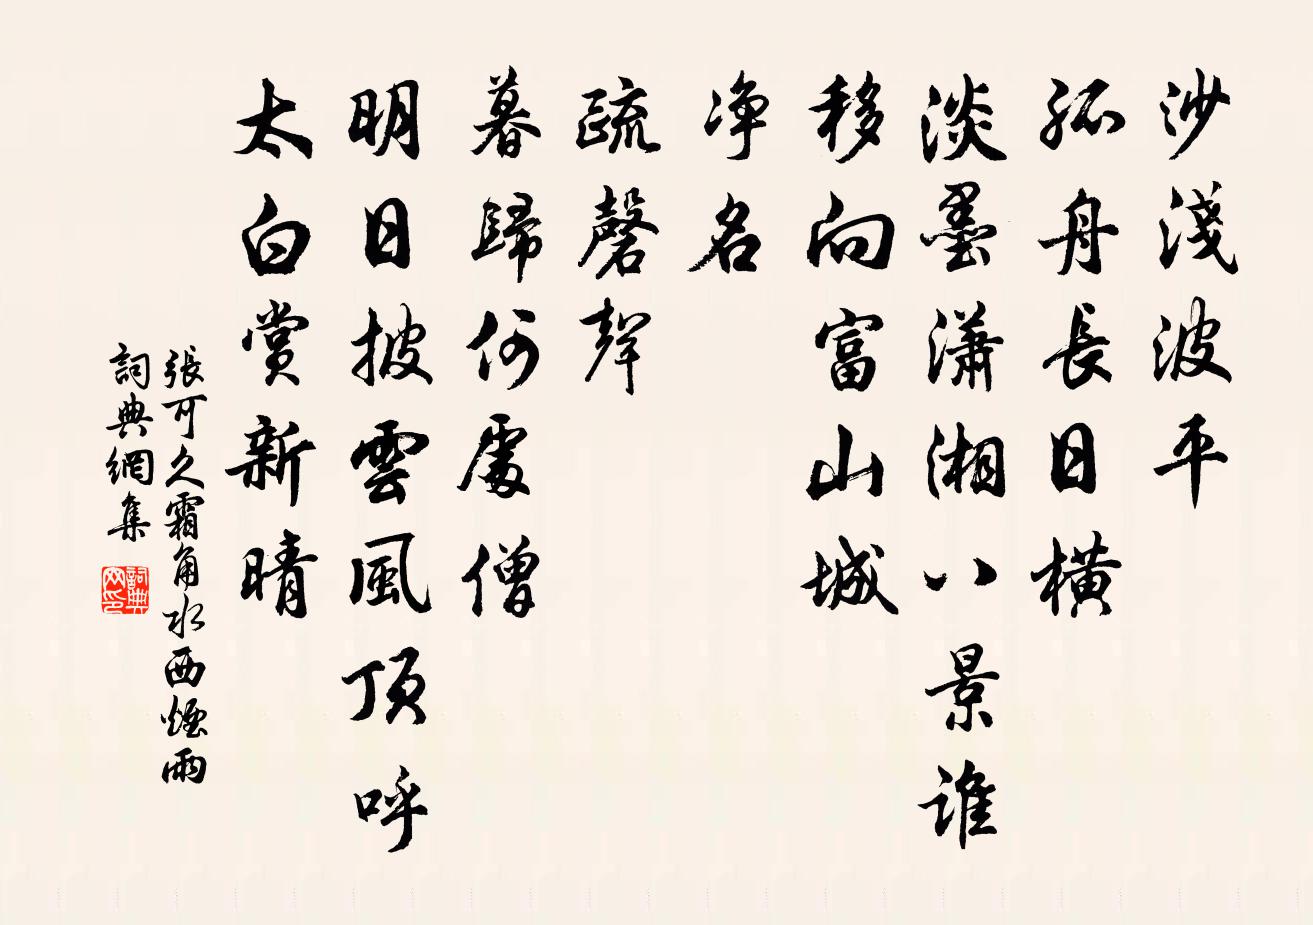 沙淺波平
孤舟長日橫
淡墨瀟湘八景誰
移向富山城
净名
疏磬聲
暮歸何處僧
明日披雲風頂呼
太白賞新晴
張可久霜角水西煙雨
詞典網集
詞典
网印